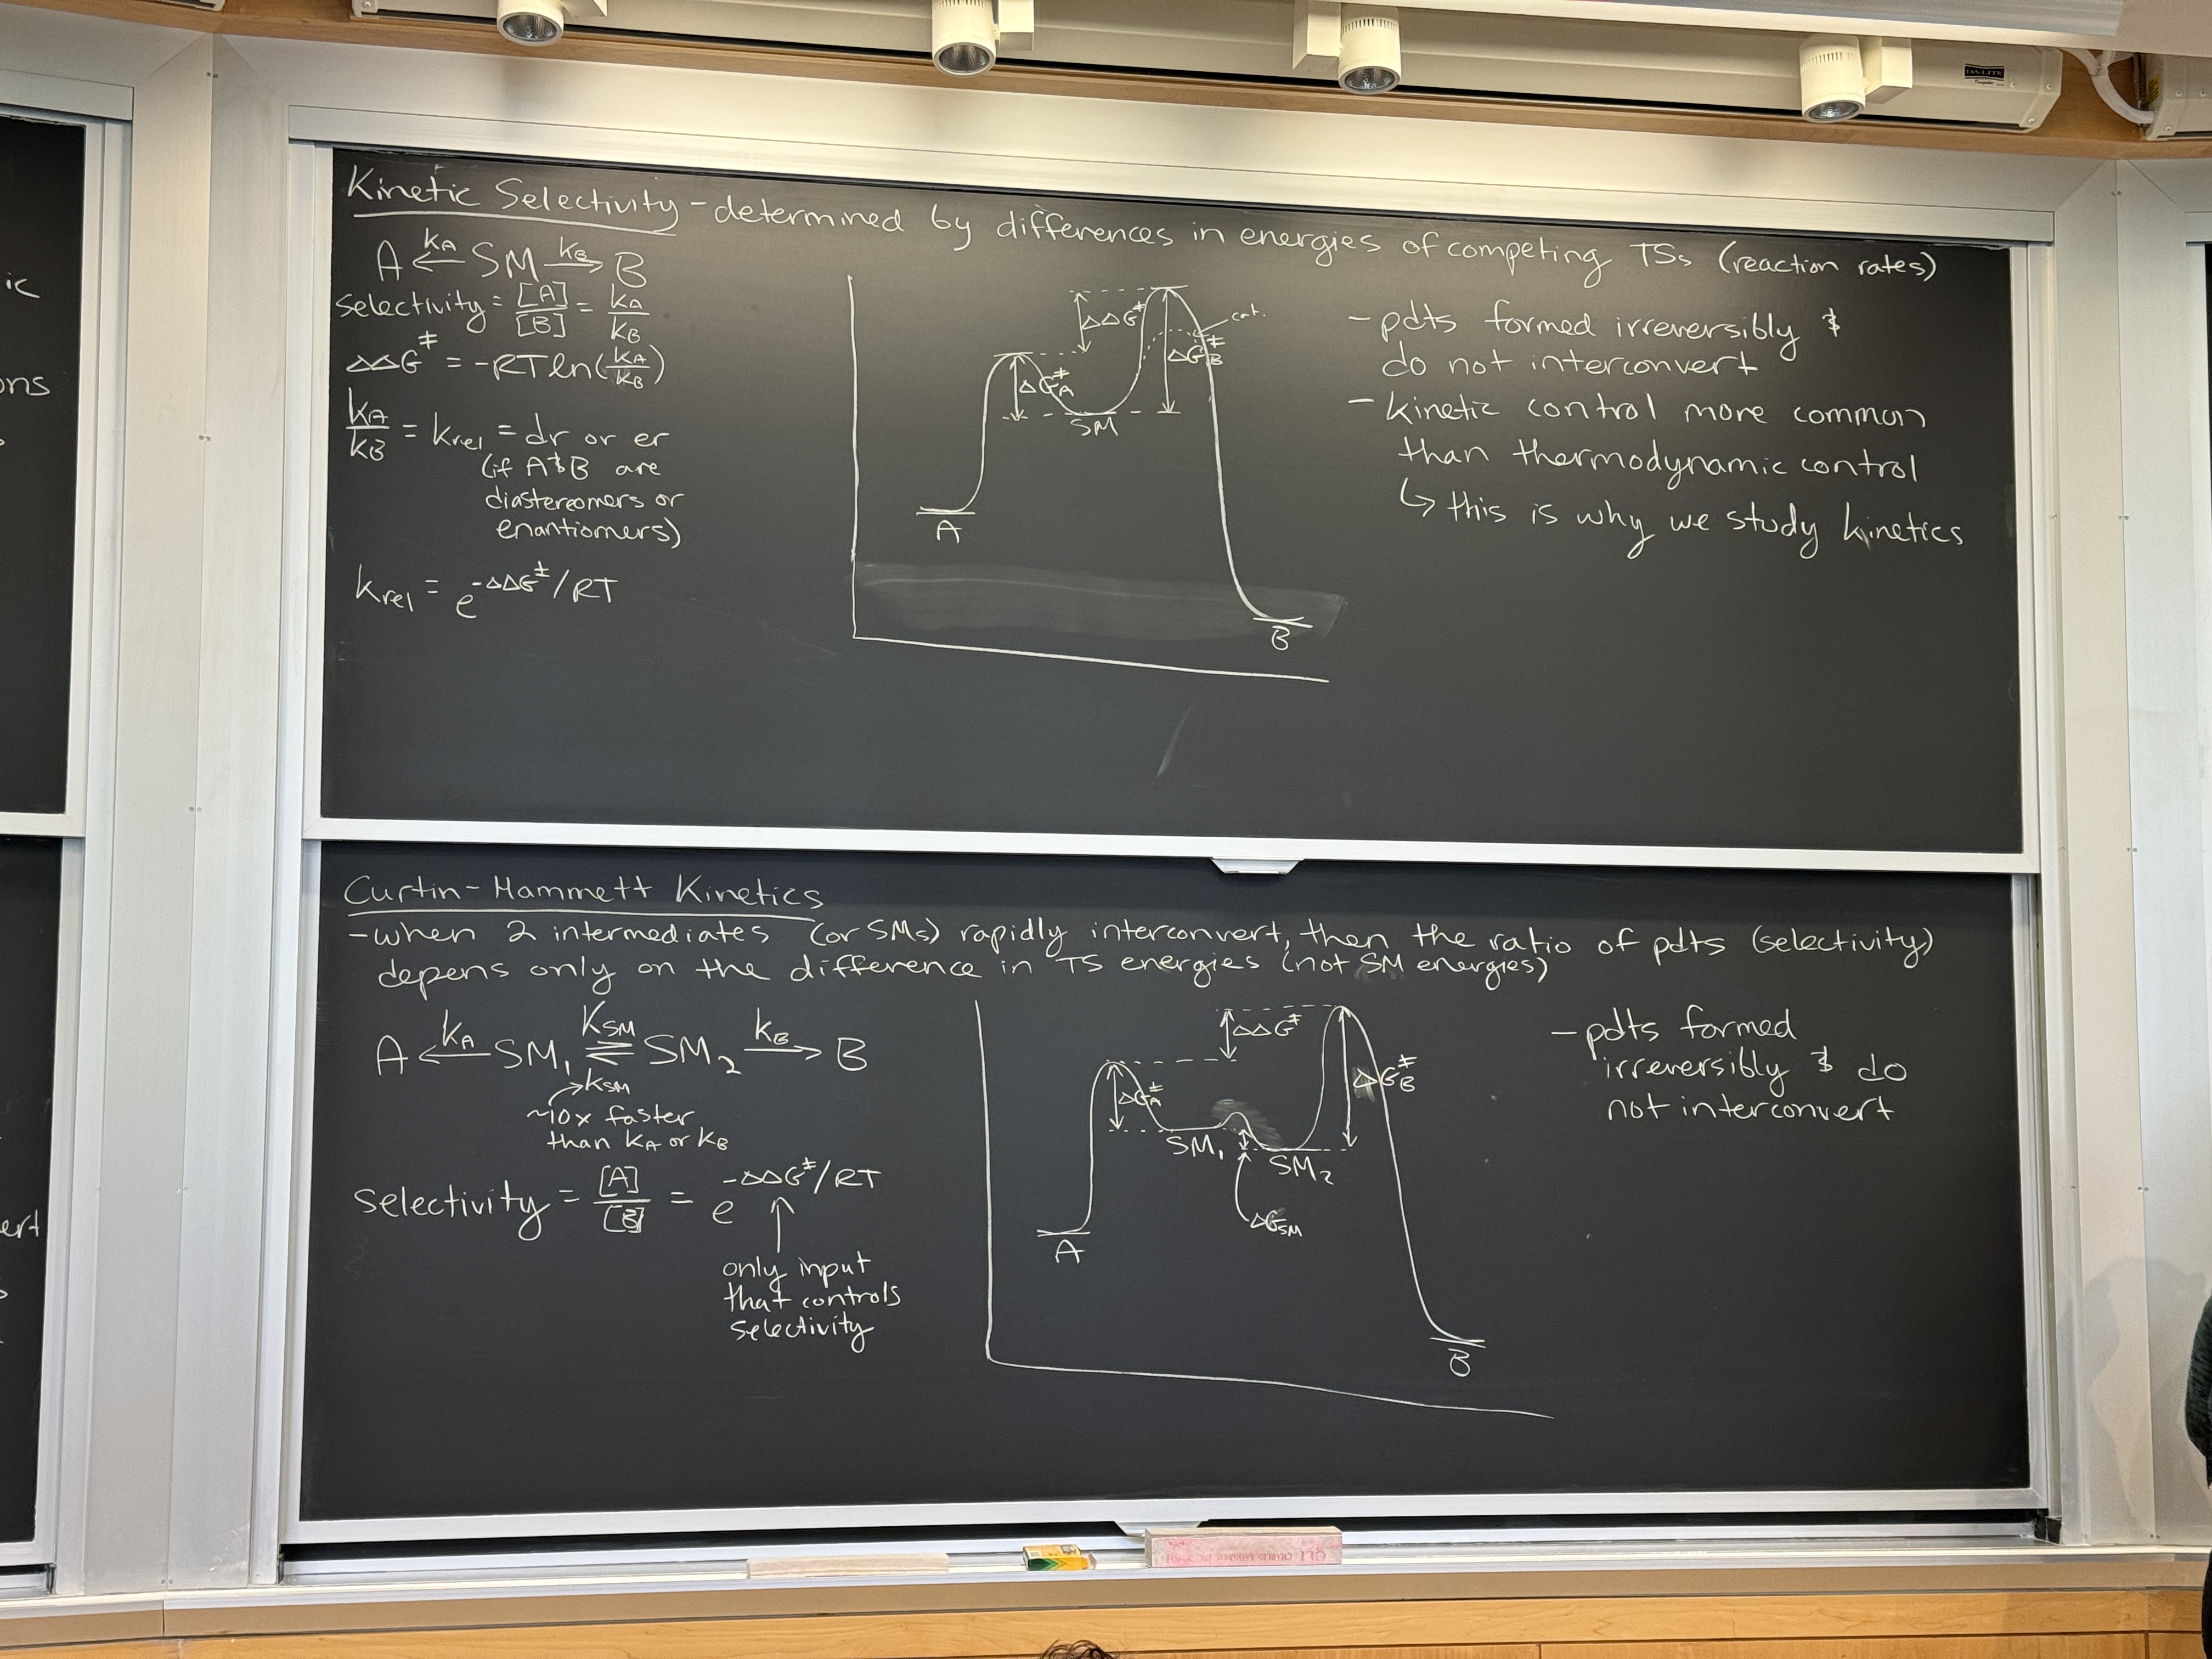 Kinetic Selectivity - determined by differences in energies of competing TSs (reaction rates)
A ←kA SM kB→ B
selectivity = [A]/[B] = kA/kB
ΔΔG‡ = -RT ln(kA/kB)
kA/kB = krel = dr or er
(if A & B are
diastereomers or
enantiomers)
krel = e^-ΔΔG‡/RT
ΔΔG‡
cat.
ΔG‡A
ΔG‡B
SM
A
B
- pdts formed irreversibly &
do not interconvert
- kinetic control more common
than thermodynamic control
↳ this is why we study kinetics
Curtin-Hammett Kinetics
- when 2 intermediates (or SMs) rapidly interconvert, then the ratio of pdts (selectivity)
depens only on the difference in TS energies (not SM energies)
A ←kA SM1 KSM⇌ SM2 kB→ B
kSM
~10x faster
than kA or kB
selectivity = [A]/[B] = e^-ΔΔG‡/RT
only input
that controls
selectivity
ΔΔG‡
ΔG‡A
ΔG‡B
SM1
SM2
ΔGSM
A
B
- pdts formed
irreversibly & do
not interconvert
ic
ons
ert
DA-LITE